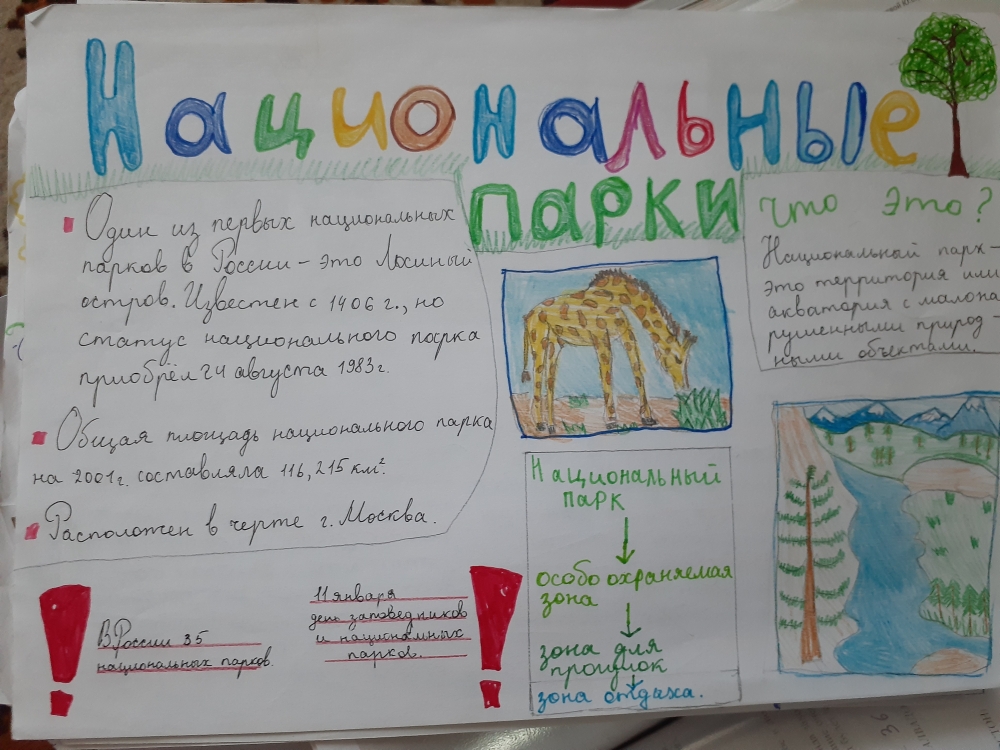 Национальные
парки
Один из первых национальных
парков в России - это Лосиный
остров. Известен с 1406 г., но
статус национального парка
приобрёл 24 августа 1983г.
Общая площадь национального парка
на 2001г. составляла 116,215 км².
Расположен в черте г. Москва.
Что это?
Национальный парк -
это территория или
акватория с малона
рушенными природ -
ными объектами.
Национальный
парк
особо охраняемая
зона
зона для
прогулок
зона отдыха.
В России 35
национальных парков.
11 января
день заповедников
и национальных
парков.